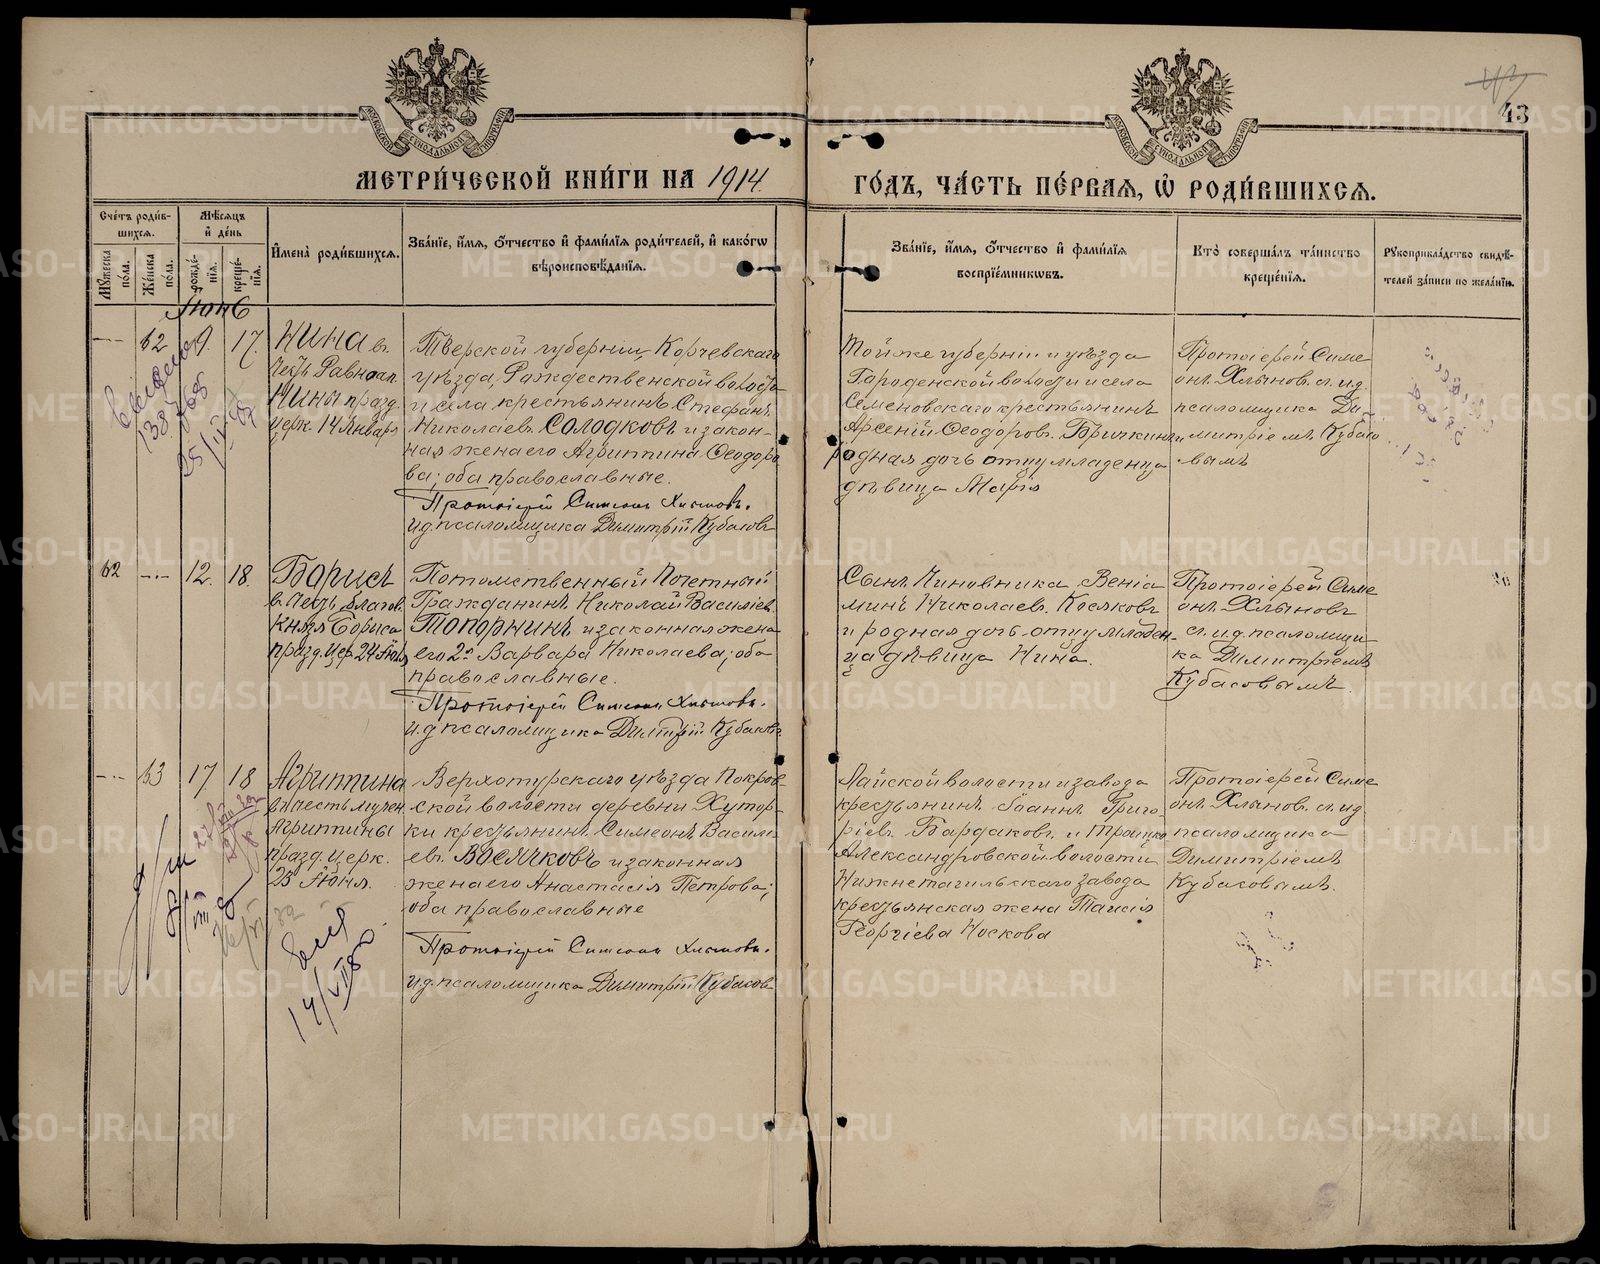 43
43
МЕТРИ́ЧЕСКОЙ КНИ́ГИ НА 1914
ГО́ДЪ, ЧА́СТЬ ПЕ́РВАЯ, Ѡ РОДИ́ВШИХСЯ.
МОСКОВСКОЙ СѴНОДАЛЬНОЙ ТИПОГРАФІИ
МОСКОВСКОЙ СѴНОДАЛЬНОЙ ТИПОГРАФІИ
Сче́тъ роди́вшихся.
Му́жеска по́ла.
Же́нска по́ла.
Мѣ́сяцъ и де́нь
рожде́нія.
креще́нія.
Имена̀ роди́вшихся.
Зва́ніе, и́мя, о́тчество и фами́лія роди́телей, и како́гѡ
вѣроисповѣ́данія.
Зва́ніе, и́мя, о́тчество и фами́лія
воспріе́мниковъ.
Кто̀ соверша́лъ та́инство
креще́нія.
Рукоприкла́дство свидѣ́-
телей за́писи по жела́нію.
Іюнь
62 9. 17.
Нина въ
честь Равноап.
Нины празд.
церк. 14 Января
Тверской губерніи, Корчевскаго
уѣзда, Рождественской волости
и села крестьянинъ Стефанъ
Николаевъ Солодковъ и закон-
ная жена его Агриппина Ѳеодоро
ва; оба православные.
Протоіерей Симеонъ Хлыновъ.
и.д. псаломщика Димитрій Кубасовъ
Той же губерніи и уѣзда
Городенской волости и села
Семеновскаго крестьянинъ
Арсеній Ѳеодоровъ Бричкинъ и
родная дочь отцу младенца
дѣвица Марія
Протоіерей Симе
онъ Хлыновъ с. и.д.
псаломщика Ди
митріемъ Кубасо
вымъ
62 12. 18.
Борисъ
въ честь благов.
Князя Бориса
празд. цер. 24 Іюля
Потомственный Почетный
Гражданинъ Николай Василіев.
Топорнинъ и законная жена
его 2я Варвара Николаева; оба
православные.
Протоіерей Симеонъ Хлыновъ.
и.д. псаломщика Димитрій Кубасовъ
Сынъ Чиновника Веніа
минъ Николаев. Косяковъ
и родная дочь отцу младен-
ца дѣвица Нина.
Протоіерей Симе
онъ Хлыновъ
с. и.д. псаломщи-
ка Димитріемъ
Кубасовымъ.
63 17 18
Агриппина
въ честь мучен.
Агриппины
празд. церк.
23 Іюня.
Верхотурскаго уѣзда Покров-
ской волости деревни Хутор-
ки крестьянинъ Симеонъ Василь
евъ Восячковъ и законная
жена его Анастасія Петрова;
оба православные
Протоіерей Симеонъ Хлыновъ.
и.д. псаломщика Димитрій Кубасовъ
Лайской волости и завода
крестьянинъ Іоаннъ Григо
ріевъ Бардаковъ и Троицко
Александровской волости
Нижнетагильскаго завода
крестьянская жена Таисія
Георгіева Носкова
Протоіерей Симе
онъ Хлыновъ с. и.д.
псаломщика
Димитріемъ
Кубасовымъ.
METRIKI.GASO-URAL.RU